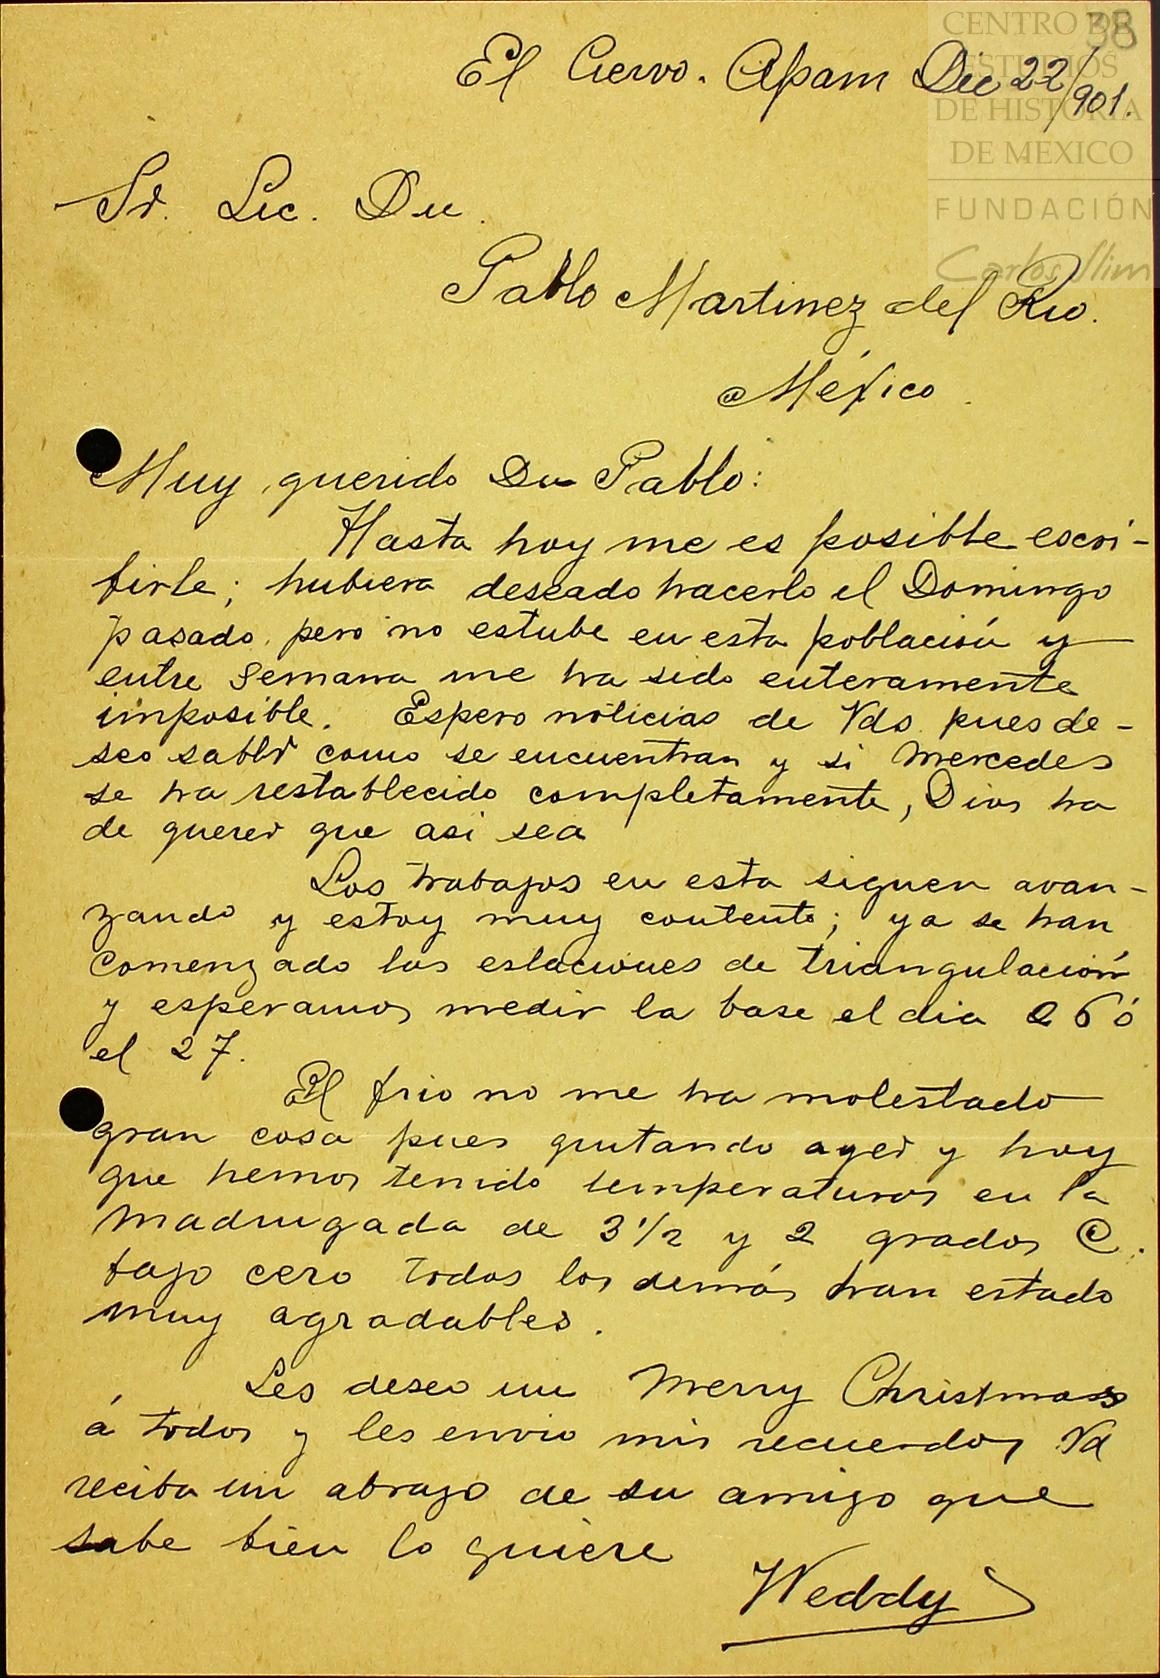 38
CENTRO DE
ESTUDIOS
DE HISTORIA
DE MEXICO
FUNDACIÓN
Carlos Slim
El Cuervo. Apam Dic 22/901.
Sr. Lic. Dn
Pablo Martinez del Rio.
México.
Muy querido Dn Pablo:
Hasta hoy me es posible escri-
birle; hubiera deseado hacerlo el Domingo
pasado, pero no estube en esta población y
entre Semana me ha sido enteramente
imposible. Espero noticias de Vds. pues de-
seo saber como se encuentran y si Mercedes
se ha restablecido completamente, Dios ha
de querer que asi sea
Los trabajos en esta siguen avan-
zando y estoy muy contento; ya se han
Comenzado las estaciones de triangulación
y esperamos medir la base el dia 26 ó
el 27.
El frio no me ha molestado
gran cosa pues quitando ayer y hoy
que hemos tenido temperaturas en la
madrugada de 3 1/2 y 2 grados C.
bajo cero todos los demás han estado
muy agradables.
Les deseo un Merry Christmas
á todos y les envio mis recuerdos Vd
reciba un abrazo de su amigo que
sabe bien lo quiere
Weddy